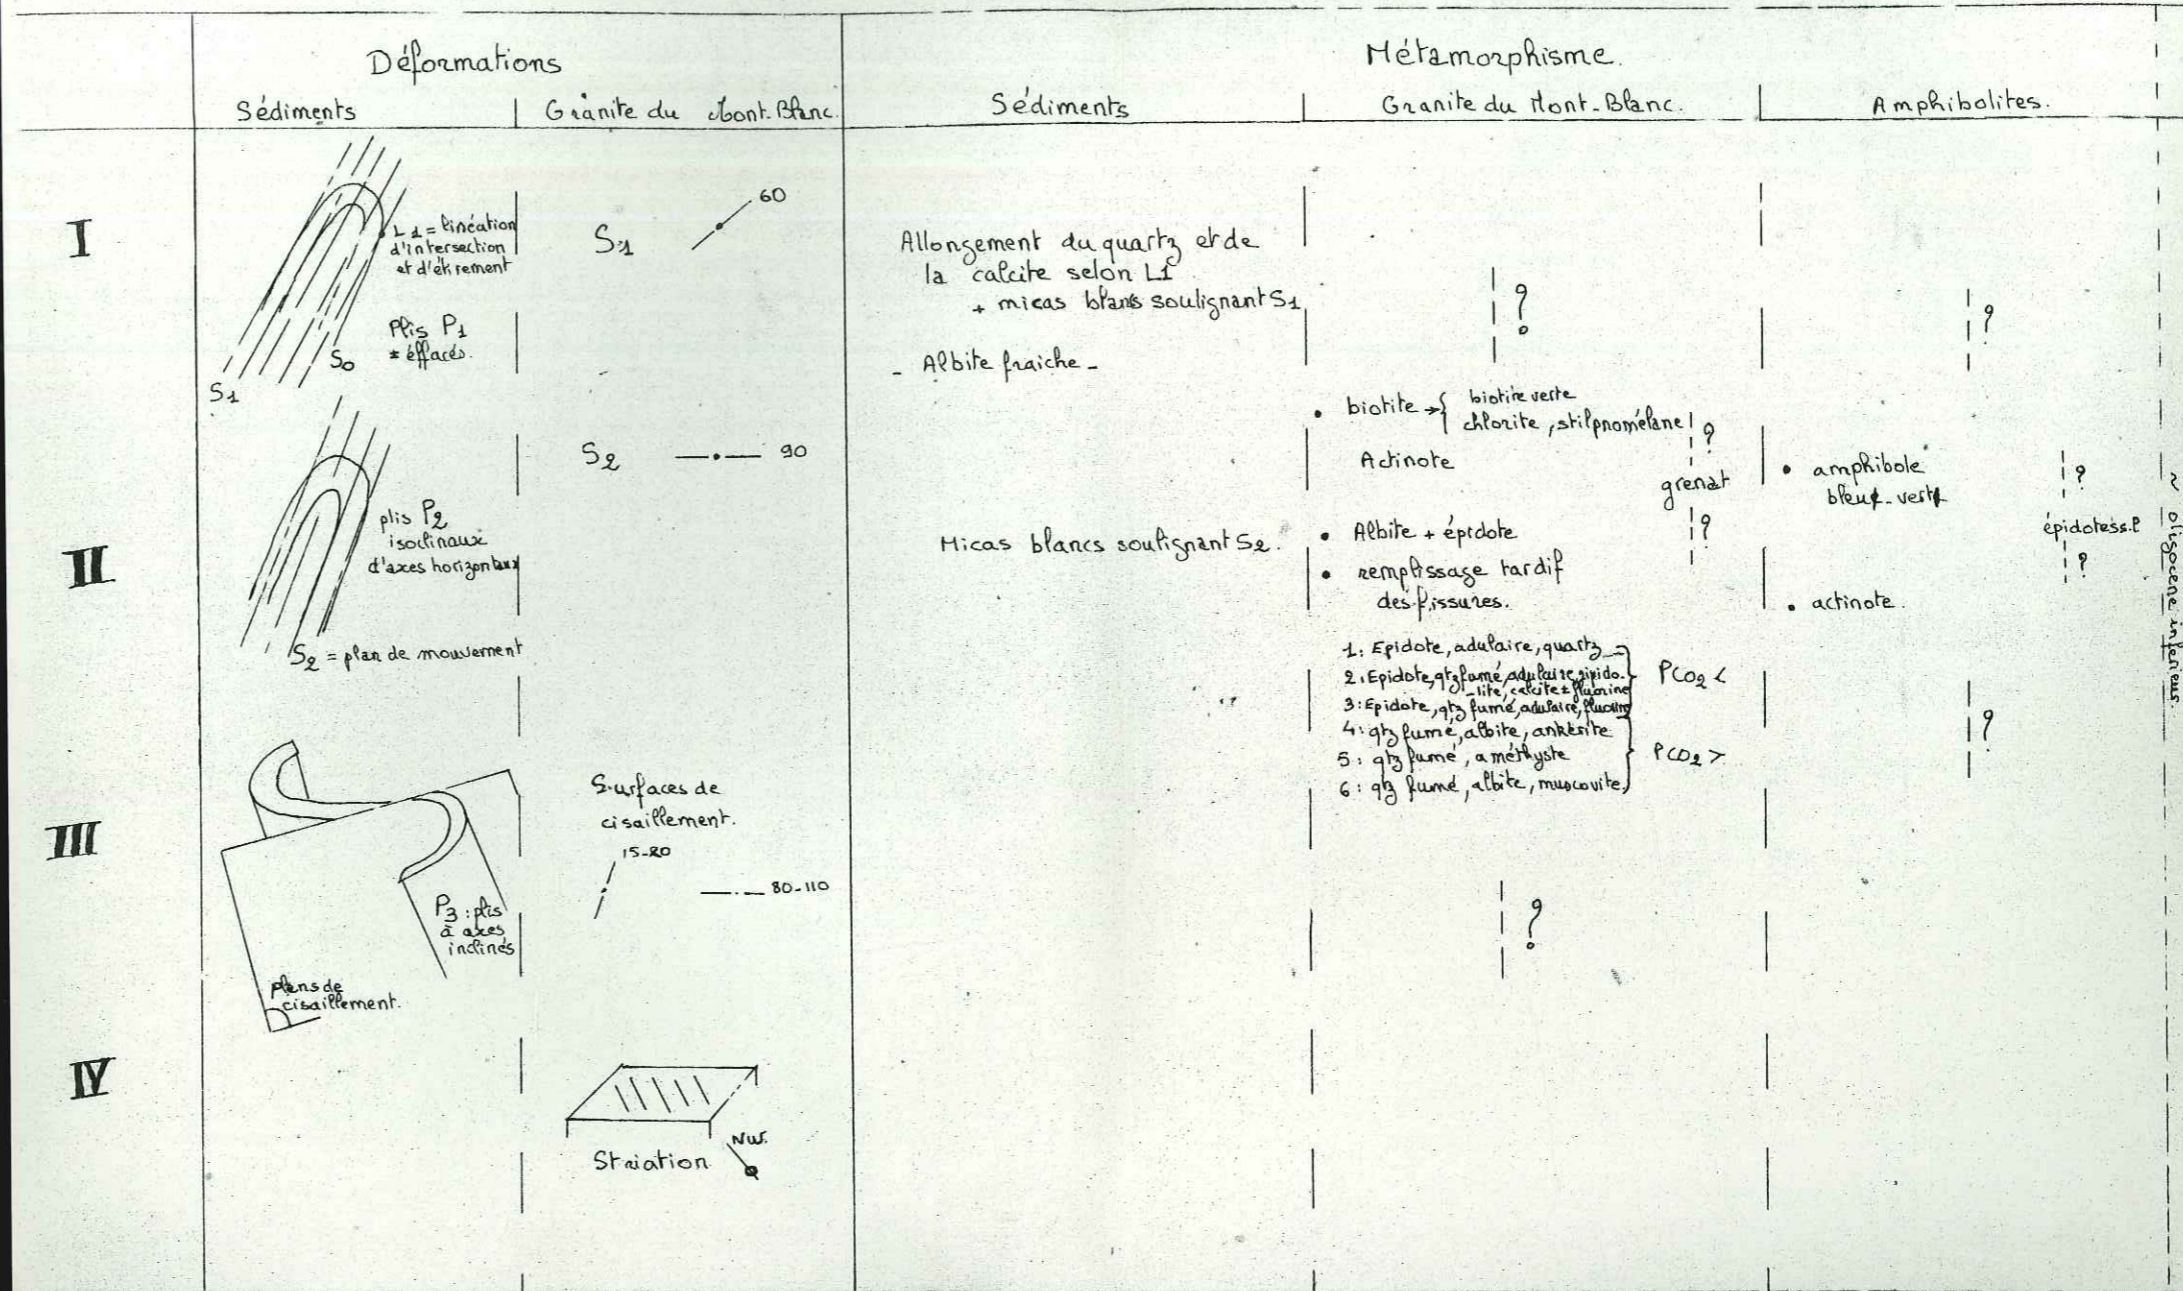 Déformations
Métamorphisme.
Sédiments
Granite du Mont-Blanc.
Sédiments
Granite du Mont-Blanc.
Amphibolites.
I
L1 = linéation
d'intersection
et d'étirement
Plis P1
± éffacés.
S0
S1
S1
60
Allongement du quartz et de
la calcite selon L1
+ micas blancs soulignant S1
- Albite fraiche -
?
?
II
plis P2
isoclinaux
d'axes horizontaux
S2 = plan de mouvement
S2
90
Micas blancs soulignant S2.
• biotite → { biotite verte
chlorite, stilpnomélane
?
Actinote
grenat
?
• Albite + épidote
• remplissage tardif
des fissures.
1: Epidote, adulaire, quartz
2: Epidote, qtz fumé, adulaire, ripido-
-lite, calcite ± fluorine
3: Epidote, qtz fumé, adulaire, fluorine
PCO2 <
4: qtz fumé, albite, ankérite
5: qtz fumé, améthyste
6: qtz fumé, albite, muscovite
PCO2 >
• amphibole
bleue-verte
?
épidotes s.l
?
• actinote.
?
~ oligocène inférieur.
III
P3 : plis
à axes
inclinés
plans de
cisaillement.
Surfaces de
cisaillement.
15-20
80-110
?
IV
Striation
NW.